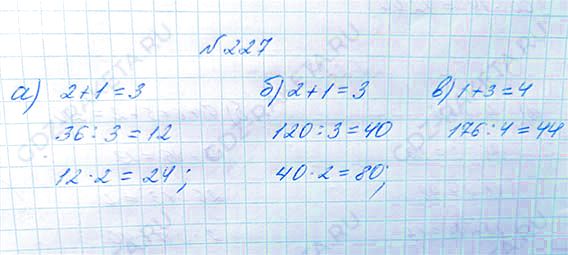 №227
а) 2+1=3 б) 2+1=3 в) 1+3=4
36:3=12 120:3=40 176:4=44
12·2=24; 40·2=80;